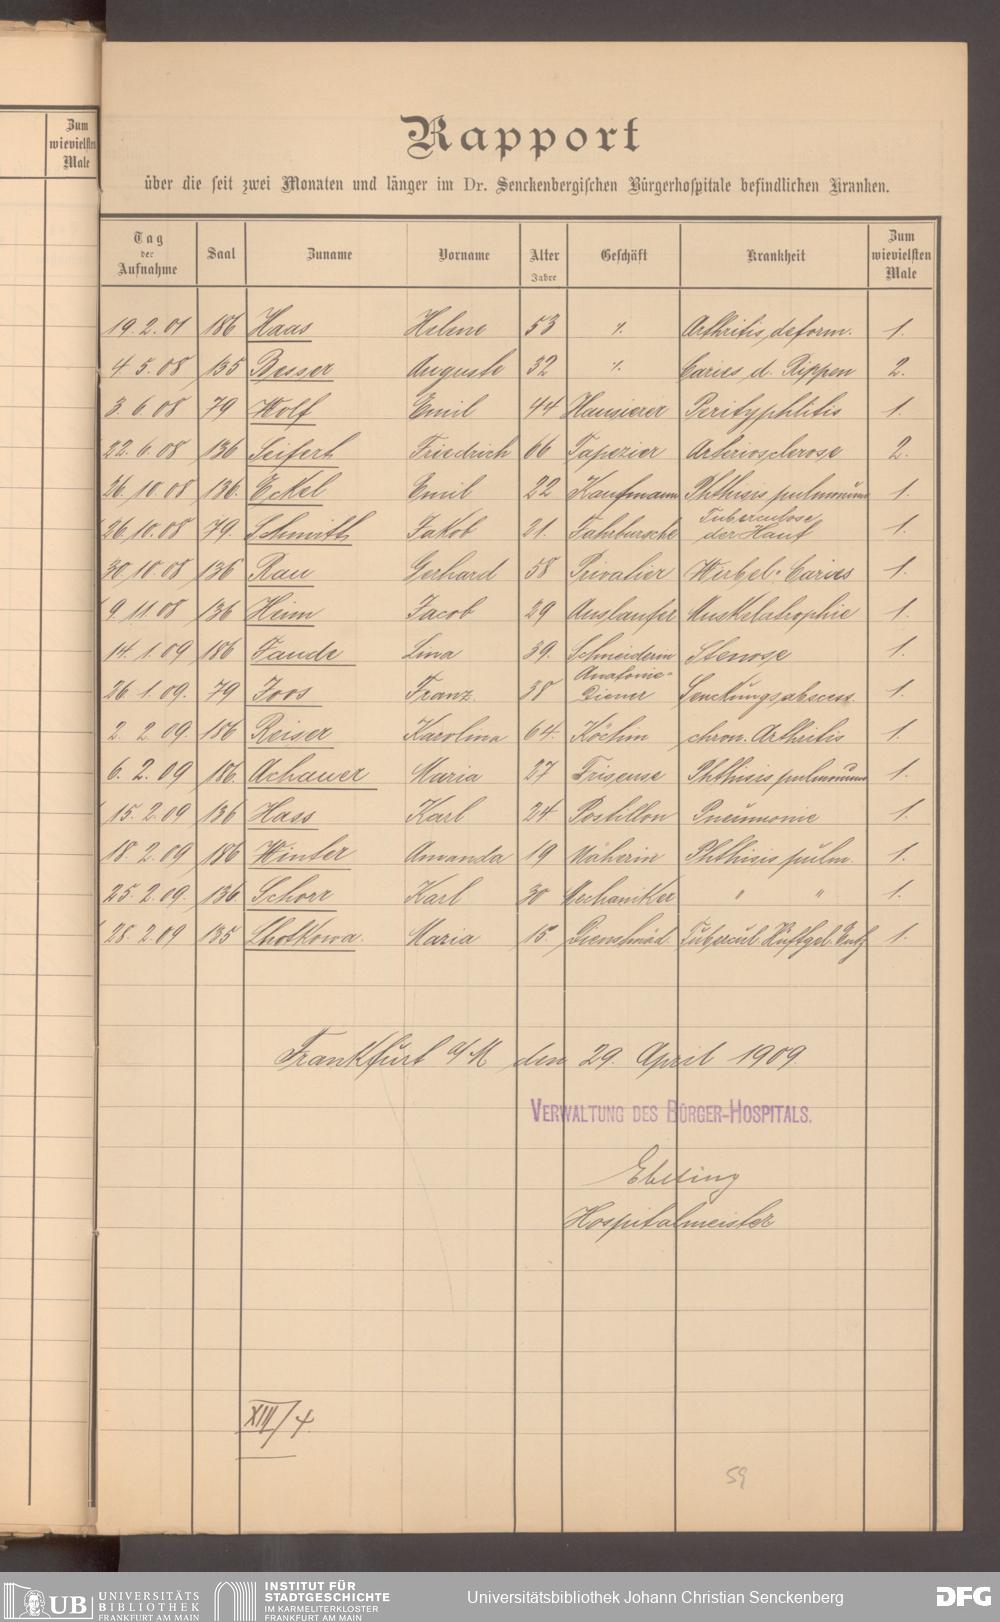 Zum
wievielsten
Male
Rapport
über die seit zwei Monaten und länger im Dr. Senckenbergischen Bürgerhospitale befindlichen Kranken.
Tag der Aufnahme Saal Zuname Vorname Alter Jahre Geschäft Krankheit Zum wievielsten Male
19. 2. 01 186 Haas Helene 53 ./. Arthritis deform. 1.
4 5. 08 135 Besser Auguste 32 ./. Caries d. Rippen 2.
3. 6. 08 79 Wolf Emil 44 Hausierer Perityphlitis 1.
22. 6. 08 136 Seifert Friedrich 66 Tapezier Arteriosclerose 2.
26. 10. 08 136. Eckel Emil 22 Kaufmann Phthisis pulmonum 1.
26. 10. 08 79. Schmitt Jakob 21. Fahrbursche Tuberculose der Haut 1.
30 10. 08 136 Rau Gerhard 58 Privatier Wirbel-Caries 1.
9. 11. 08 136 Heim Jacob 29 Auslaufer Muskelatrophie 1.
14. 1. 09 186 Lina 39. Schneiderin Stenose 1.
26 1. 09. 79 Joos Franz 38 Anatomie-Diener Senckungsabscess. 1.
2. 2. 09. 186 Reiser Karolina 64. Köchin chron. Arthritis 1.
6. 2. 09 186. Achauer Maria 27 Friseuse Phthisis pulmonum 1.
15. 2. 09 136 Hass Karl 24. Postillon Pneumonie 1.
18. 2. 09 186 Winter Amanda 19 Näherin Phthisis pulm. 1.
25. 2. 09. 136. Schorr Karl 30 Mechaniker " " 1.
28. 2. 09 135 Maria 15. Dienstmäd. Tubercul. Hüftgel. Entz 1.
Frankfurt a/M den 29. April 1909.
VERWALTUNG DES BÜRGER-HOSPITALS.
Ebeling
Hospitalmeister
XIII/4.
59
UB UNIVERSITÄTS
BIBLIOTHEK
FRANKFURT AM MAIN
INSTITUT FÜR
STADTGESCHICHTE
IM KARMELITERKLOSTER
FRANKFURT AM MAIN
Universitätsbibliothek Johann Christian Senckenberg
DFG